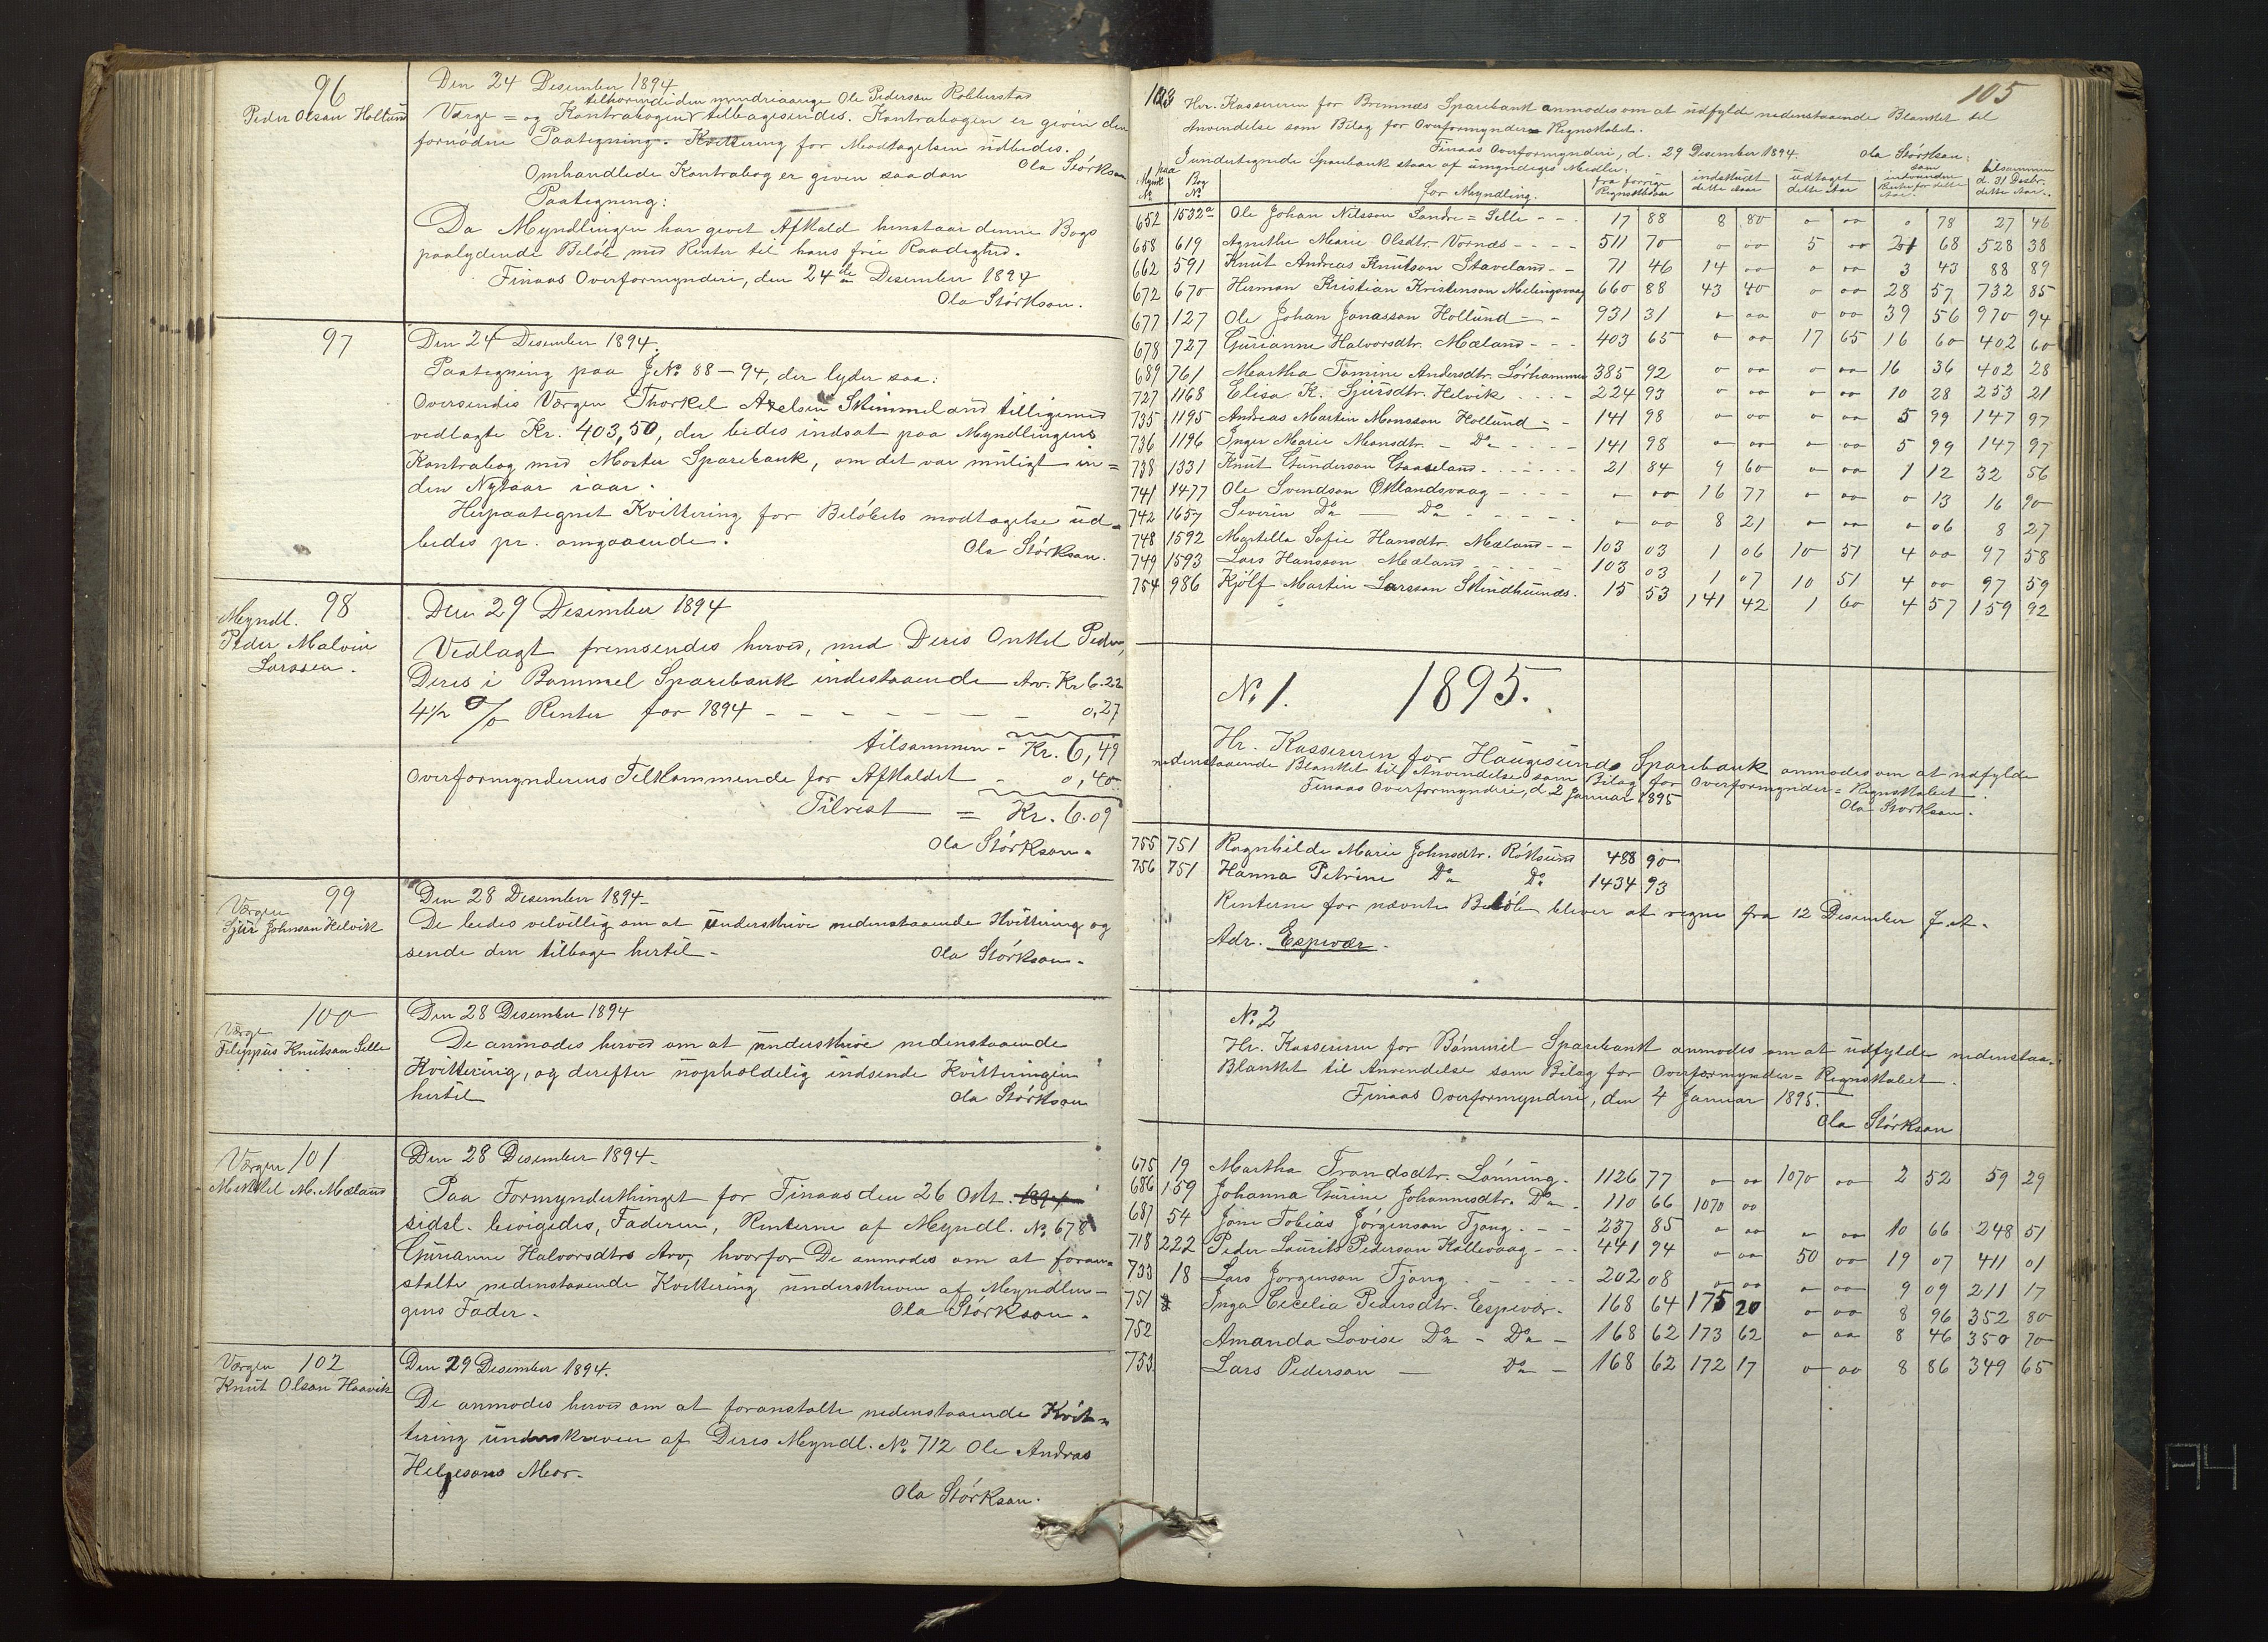 96
Peder Olson Hollund
Den 24 Desember 1894
tilhorende den myndriaarige Ole Pederson Robberstad
Værge = og Kontrabogen tilbagesendes. Kontrabogen er given den
fornødne Paategning. Kvittering for Modtagelsen udbedes.
Ola Størkson
Omhandlede Kontrabog er given saadan
Paategning:
Da Myndlingen har givet Afkald henstaar denne Bogs
paalydende Beløb med Renter til hans frie Raadighed.
Finaas Overformynderi, den 24de Desember 1894
Ola Størkson.
97
Den 24 Desember 1894.
Paategning paa J. No. 88-94, der lyder saa:
Oversendes Værgen Thorkel Axelsen Skimmeland tilligemed
vedlagte Kr. 403,50, der bedes indsat paa Myndlingens
Kontrabog med Moster Sparebank, om det var muligt in=
den Nytaar iaar.
Herpaategnet Kvittering for Beløbets modtagelse ud=
bedes pr. omgaaende.
Ola Størkson.
Myndl. 98
Peder Malvin
Larssen.
Den 29 Desember 1894
Vedlagt fremsendes herved, med Deres Onkel Peder,
Deres i Bømmel Sparebank indestaaende Arv. Kr 6.22
4½ % Renter for 1894 - - - - - - - 0,27
tilsammen - Kr. 6,49
Overformynderens Tilkommende for Afkaldet - 0,40
Tilrest = Kr. 6.09
Ola Størkson.
Værgen 99
Sjur Johnson Helvik
Den 28 Desember 1894
De bedes velvillig om at underskrive nedenstaaende Kvittering og
sende den tilbage hertil -
Ola Størkson.
Værge 100
Filippus Knutson Selle
Den 28 Desember 1894
De anmodes herved om at underskrive nedenstaaende
Kvittering, og derefter uopholdelig indsende Kvitteringen
hertil
Ola Størkson
Værgen 101
Mikkel M. Mæland
Den 28 Desember 1894.
Paa Formynderthinget for Finaas den 26 Okt. 1894
sidsl. bevigedes, Faderen, Renterne af Myndl. No. 678
Gurianne Halvorsdtrs Arv, hvorfor De anmodes om at foran=
stalte nedenstaaende Kvittering underskreven af Myndlin-
gens Fader.
Ola Størkson.
Værgen 102
Knut Olson Haavik
Den 29 Desember 1894.
De anmodes herved om at foranstalte nedenstaaende Kvit=
tering underskreven af Deres Myndl. No. 712 Ole Andras
Helgesons Mor.
Ola Størkson.
105
103 Hr. Kassereren for Bremnes Sparebank anmodes om at udfylde nedenstaaende Blanket til
Anvendelse som Bilag for Overformynder Regnskabet.
Finaas Overformynderi, d. 29 Desember 1894. Ola Størkson.
I undertegnede Sparebank staar af umyndiges Midler:
Myndl No. | paa Bog No. | for Myndling. | fra forrige Regnskabsaar | indskudt dette aar | udtaget dette aar | som indvundne Renter for dette Aar | tilsammen d. 31 Desbr. dette Aar.
652 1532a Ole Johan Nilsson Søndre = Selle - - 17 88 8 80 0 00 0 78 27 46
658 619 Agnethe Marie Olsdtr. Vornæs - - - - 511 70 0 00 5 00 21 68 528 38
662 591 Knut Andreas Knutson Staveland - - 71 46 14 00 0 00 3 43 88 89
672 670 Herman Kristian Kristenson Melingsvaag 660 88 43 40 0 00 28 57 732 85
677 127 Ole Johan Jonasson Hollund - - 931 31 0 00 0 00 39 56 970 94
678 727 Gurianne Halvorsdtr. Mæland - - - 403 65 0 00 17 65 16 60 402 60
689 761 Martha Tomine Andersdtr. Lørhammer 385 92 0 00 0 00 16 36 402 28
727 1168 Elisa K. Sjursdtr. Helvik - - - - 224 93 0 00 0 00 10 28 253 21
735 1195 Andreas Martin Monsson Hollund - - 141 98 0 00 0 00 5 99 147 97
736 1196 Inger Marie Monsdtr. - Do - - - - 141 98 0 00 0 00 5 99 147 97
738 1331 Knut Gunderson Gaaseland - - - - - 21 84 9 60 0 00 1 12 32 56
741 1477 Ole Svendson Øklandsvaag - - - - 0 00 16 77 0 00 0 13 16 90
742 1657 Severin Do - Do - - - - - 0 00 8 21 0 00 0 06 8 27
748 1592 Martella Sofie Hansdtr. Mæland - - 103 03 1 06 10 51 4 00 97 58
749 1593 Lars Hansson Mæland - - - - - 103 03 1 07 10 51 4 00 97 59
754 986 Kjölf Martin Larsson Skindhuvnæs. 15 53 141 42 1 60 4 57 159 92
No. 1. 1895.
Hr. Kassereren for Haugesunds Sparebank anmodes om at udfylde
nedenstaaende Blanket til Anvendelse som Bilag for Overformynder = Regnskabet.
Finaas Overformynderi, d. 2 Januar 1895
Ola Størkson.
755 751 Ragnhilde Marie Johnsdtr. Røksund 488 90
756 751 Hanna Petrine Do Do 1434 93
Renterne for nævnte Beløb bliver at regne fra 12 Desember f. A.
Adr. Espevær.
No. 2
Hr. Kassereren for Bømmel Sparebank anmodes om at udfylde nedenstaa:
Blanket til Anvendelse som Bilag for Overformynder = Regnskabet.
Finaas Overformynderi, den 4 Januar 1895.
Ola Størkson
675 19 Martha Trondsdtr. Lønning. 1126 77 0 00 1070 00 2 52 59 29
686 159 Johanna Gurine Johannesdtr. Do - 110 66 1070 00
687 54 Jone Tobias Jørgenson Tjong. - - 237 85 0 00 0 00 10 66 248 51
718 222 Peder Laurits Pederson Kallevaag - - 441 94 0 00 50 00 19 07 411 01
733 18 Lars Jørgenson Tjong - - - - - 202 08 0 00 0 00 9 09 211 17
751 Inga Cecelia Pedersdtr. Espevær. 168 64 175 20 0 00 8 96 352 80
752 Amanda Lovise Do - Do - 168 62 173 62 0 00 8 46 350 70
753 Lars Pederson - Do - 168 62 172 17 0 00 8 86 349 65